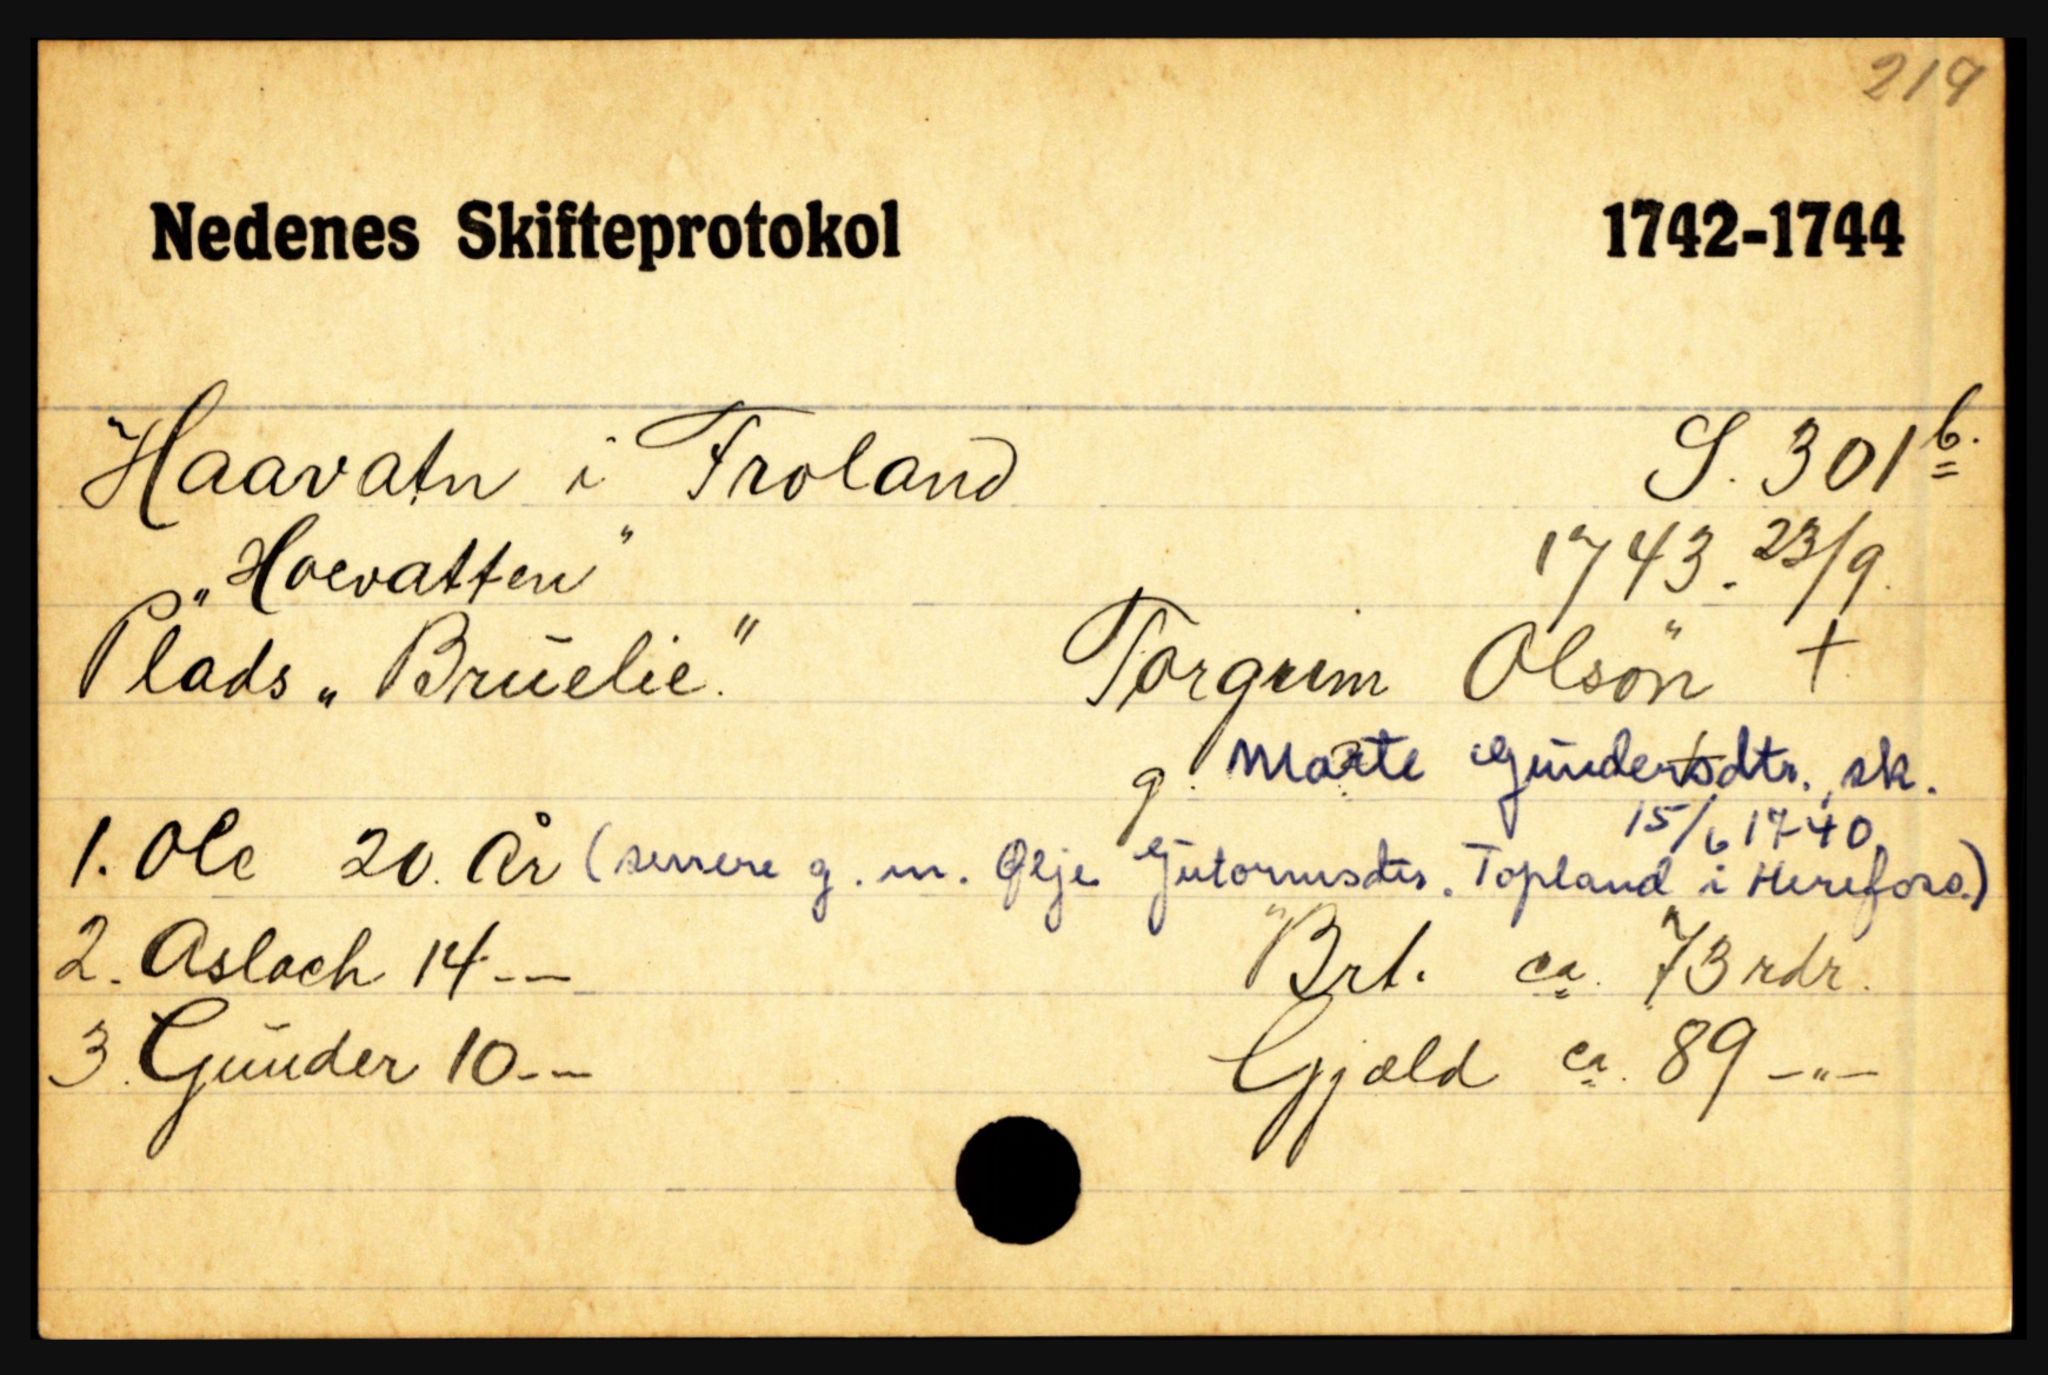 219
Nedenes Skifteprotokol 1742-1744
Haavatn i Froland S. 301 b.
"Hoevatten" 1743. 23/9.
Plads "Brüelie." Torgrim Olsön +
g. Marte Gundersdtr., sk.
15/6 1740.
1. Ole 20. År (senere g. m. Ølje Gutormsdtr. Topland i Herefoss.)
2. Aslach 14 -- Brt. ca. 73 rdr.
3. Gunder 10 -- Gjæld ca. 89 -"-